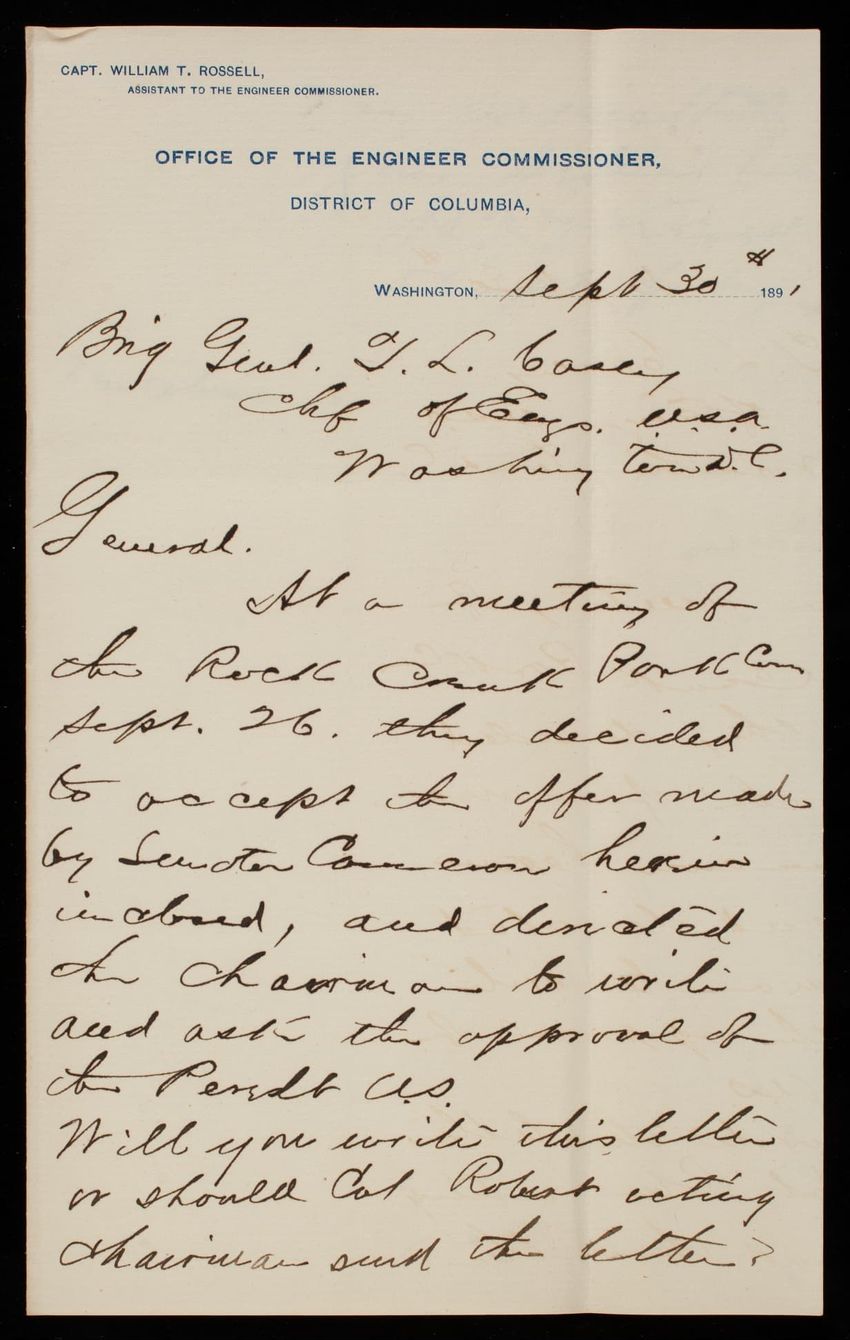 CAPT. WILLIAM T. ROSSELL,
ASSISTANT TO THE ENGINEER COMMISSIONER.
OFFICE OF THE ENGINEER COMMISSIONER,
DISTRICT OF COLUMBIA,
WASHINGTON, Sept 30th 1891
Brig Genl. T. L. Casey
Chf of Engs. U.S.A.
Washington D.C.
General.
At a meeting of
the Rock Creek Park Com
Sept. 26. they decided
to accept the offer made
by Senator Cameron herein
inclosed, and directed
the chairman to write
and ask the approval of
the Presdt U.S.
Will you write this letter
or should Col Robert acting
chairman send the letter?